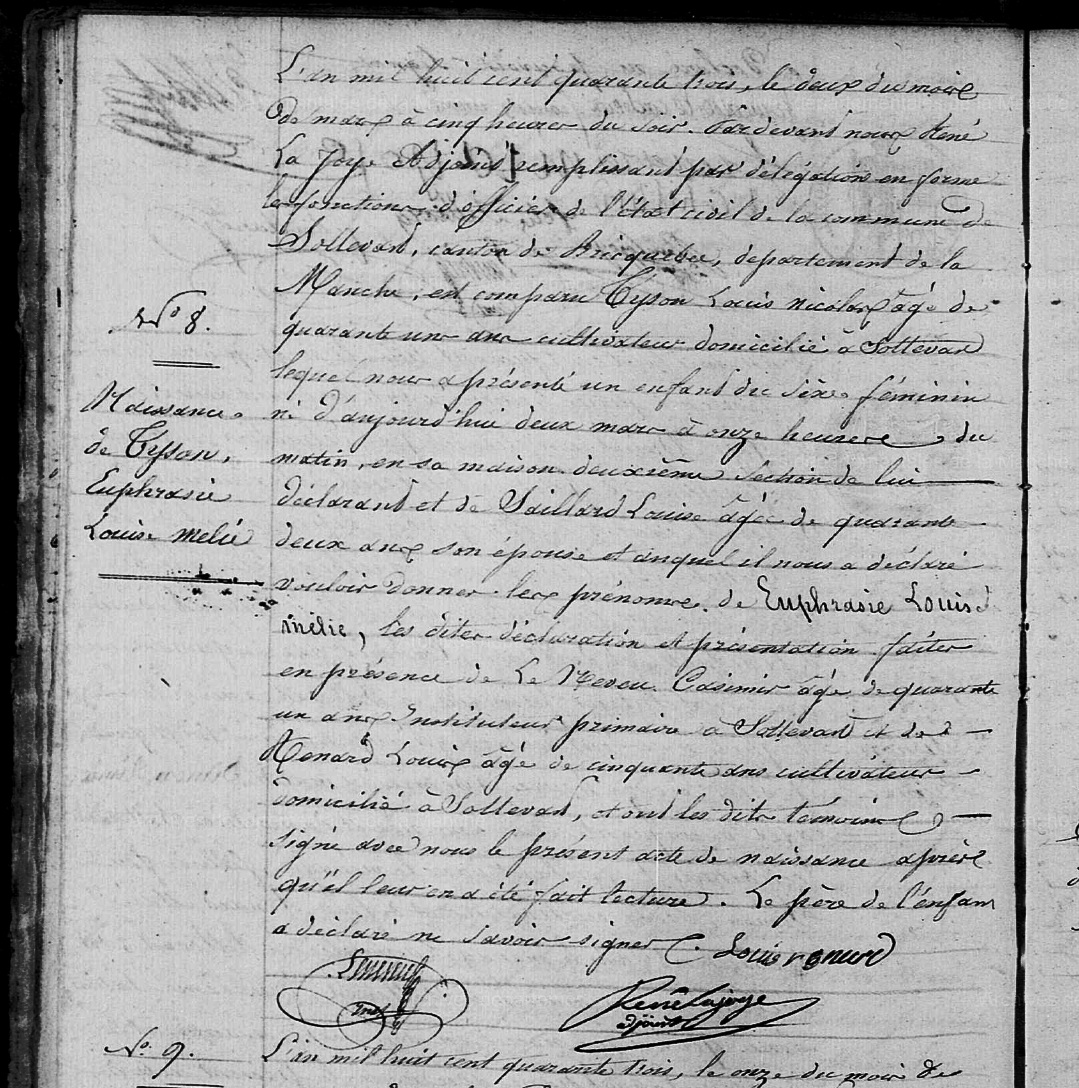 L'an mil huit cent quarante trois, le deux du mois
de mars à cinq heures du soir. Pardevant nous René
La Joye Adjoint remplissant par délégation en forme
les fonctions d'officier de l'état civil de la commune de
Sottevast, canton de Bricquebec, departement de la
Manche, est comparu Tyson Louis nicolas âgé de
N° 8.
quarante un ans cultivateur domicilié à Sottevast
lequel nous a présenté un enfant du sèxe féminin
Naissance
né d'aujourd'hui deux mars à onze heures du
de Tyson,
matin, en sa maison deuxième section de lui
Euphrasie
déclarant et de Saillard Louise âgée de quarante
Louise melie
deux ans son épouse et auquel il nous a déclaré
vouloir donner les prénoms de Euphrasie Louise
mélie, les dites déclaration et présentation faites
en présence de Le Neveu Casimir âgé de quarante
un ans Instituteur primaire à Sottevast et de
Renard Louis âgé de cinquante ans cultivateur
domicilié à Sottevast, et ont les dits témoins
signé avec nous le présent acte de naissance après
qu'il leur en a été fait lecture. Le père de l'enfant
a déclaré ne savoir signer. Louis renard
René Lajoye
adjoint
N° 9.
L'an mil huit cent quarante trois, le onze du mois de